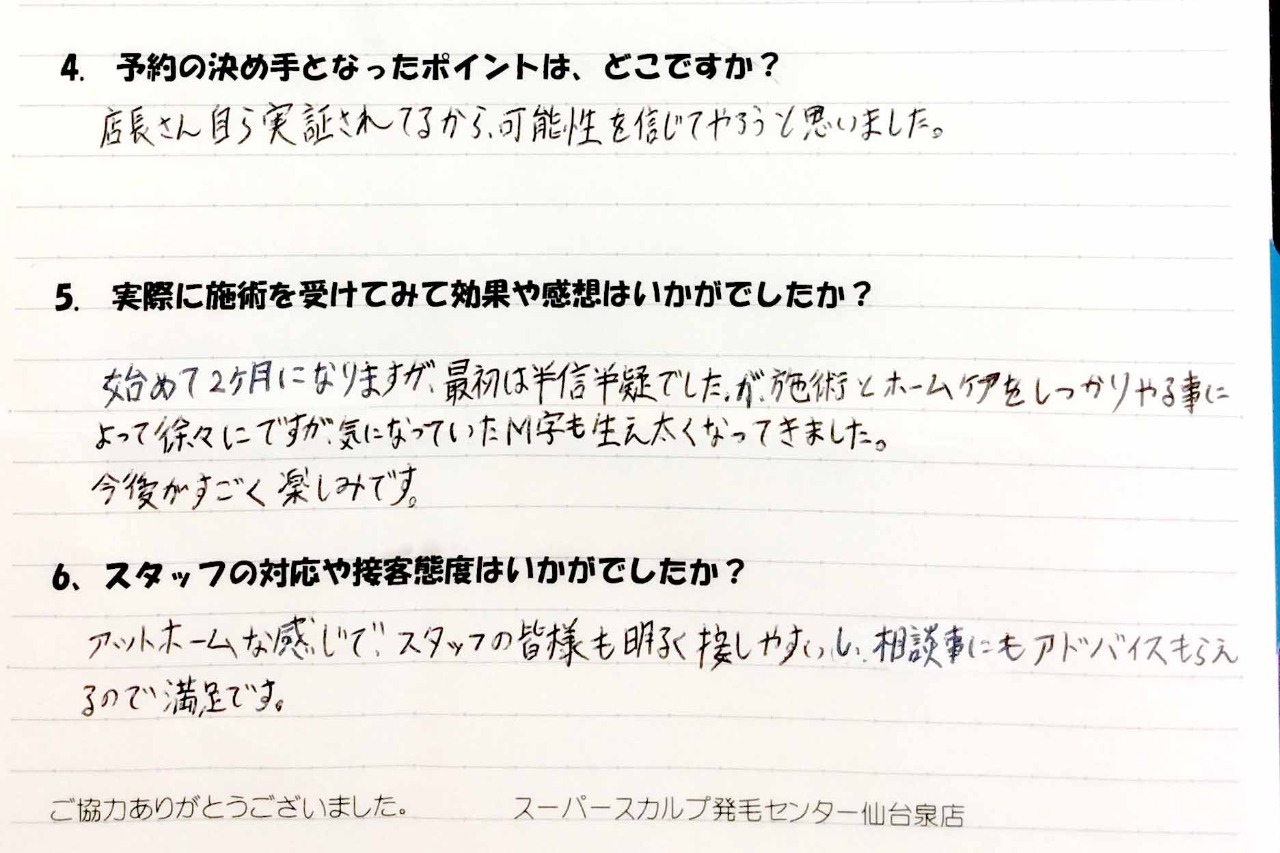 4. 予約の決め手となったポイントは、どこですか？
店長さん自ら実証されてるから、可能性を信じてやろうと思いました。
5. 実際に施術を受けてみて効果や感想はいかがでしたか？
始めて2ケ月になりますが、最初は半信半疑でした、が、施術とホームケアをしっかりやる事に
よって徐々にですが、気になっていたM字も生え太くなってきました。
今後がすごく楽しみです。
6、スタッフの対応や接客態度はいかがでしたか？
アットホームな感じで、スタッフの皆様も明るく接しやすいし、相談事にもアドバイスもらえ
るので満足です。
ご協力ありがとうございました。 スーパースカルプ発毛センター仙台泉店